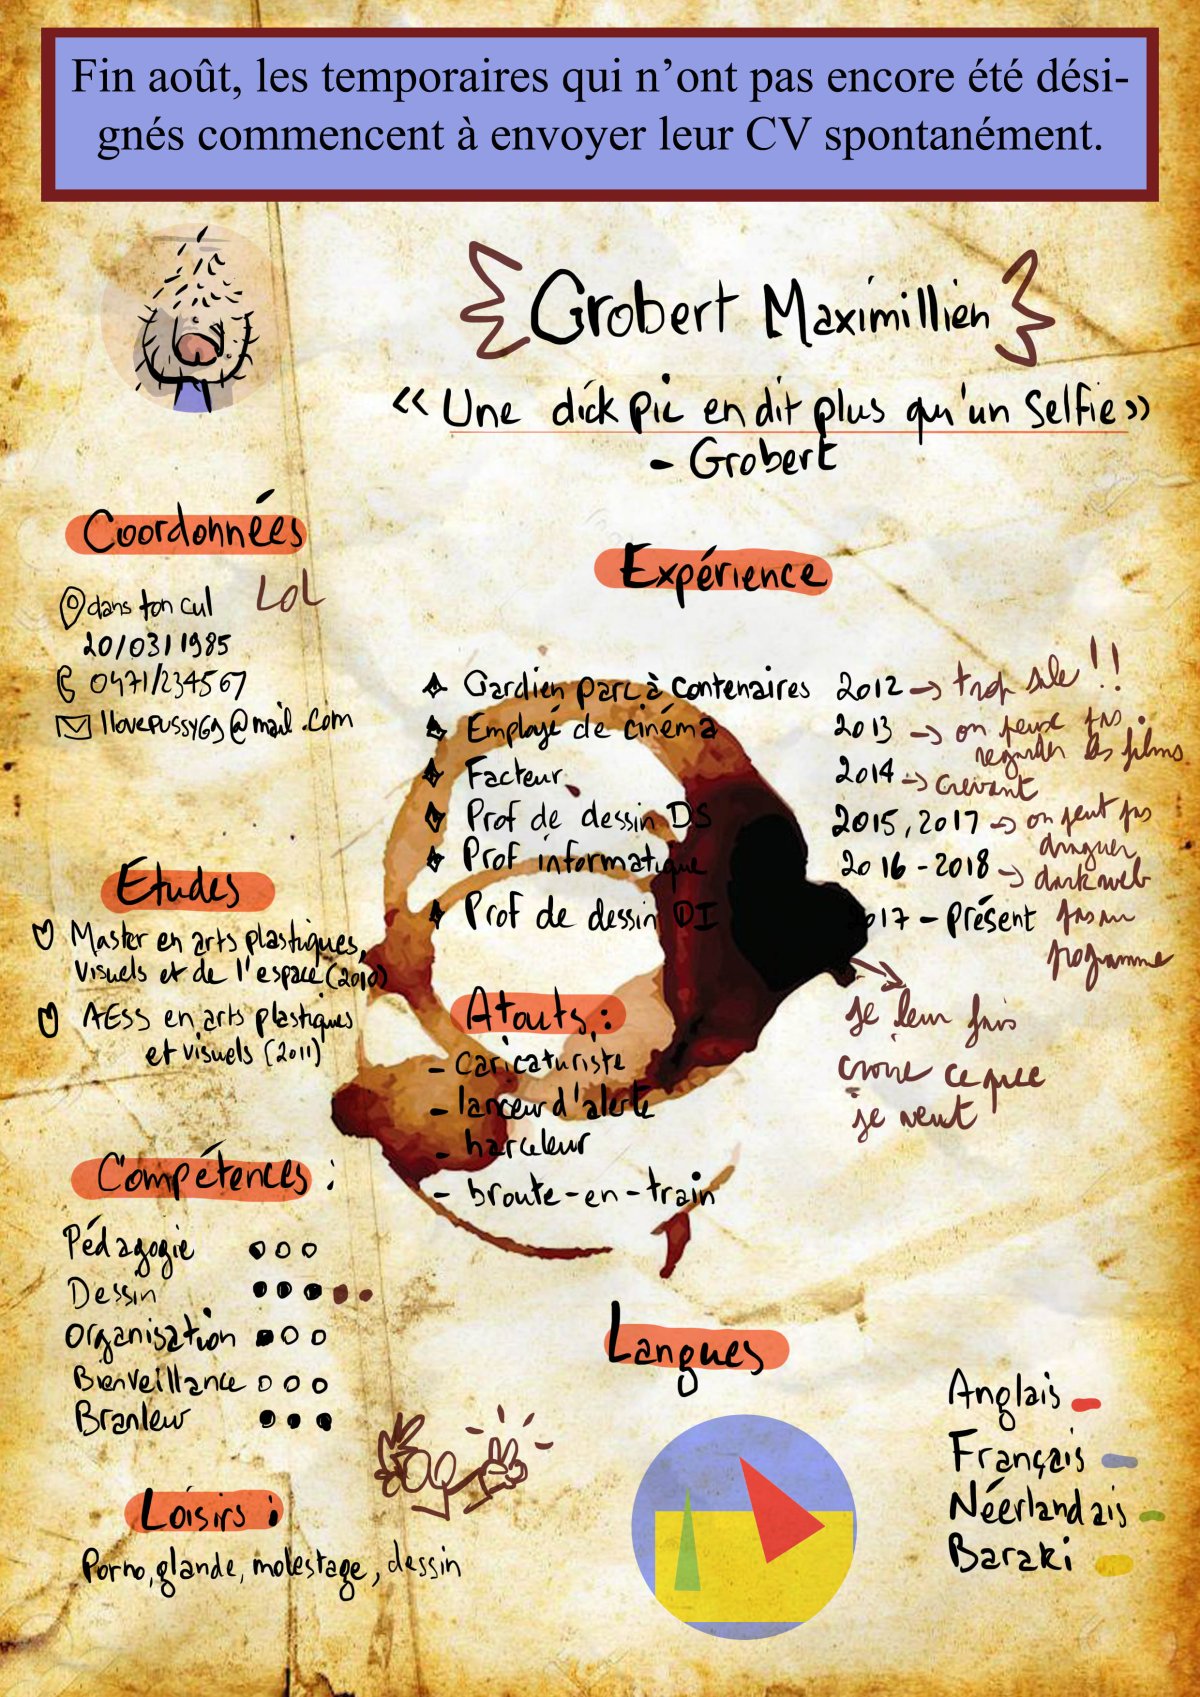 Fin août, les temporaires qui n'ont pas encore été dési-
gnés commencent à envoyer leur CV spontanément.
Grobert Maximillien
« Une dick pic en dit plus qu'un selfie »
- Grobert
Coordonnées
dans ton cul LOL
20/03/1985
0471/234567
Ilovepussy69@mail.com
Etudes
Master en arts plastiques,
visuels et de l'espace (2010)
AESS en arts plastiques
et visuels (2011)
Compétences :
Pédagogie
Dessin
Organisation
Bienveillance
Branleur
Loisirs :
Porno, glande, molestage, dessin
Expérience
Gardien parc à contenaires 2012 → trop sale !!
Employé de cinéma 2013 → on peux pas
regarder les films.
Facteur 2014 → crevant
Prof de dessin DS 2015, 2017 → on peut pas
draguer
Prof informatique 2016 - 2018 → dark web
pas au
programme
Prof de dessin DI 2017 - présent
je leur fais
croire ce que
je veut
Atouts :
- caricaturiste
- lanceur d'alerte
- harceleur
- broute-en-train
Langues
Anglais
Français
Néerlandais
Baraki